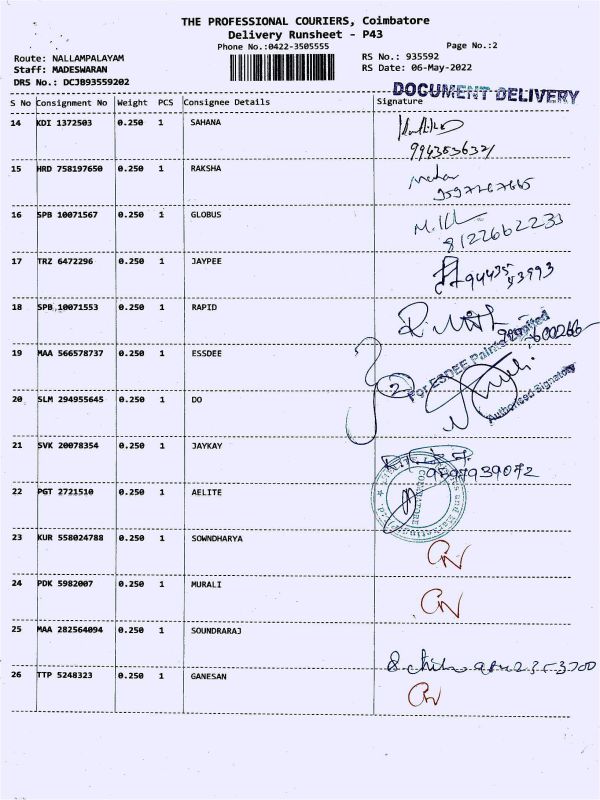 THE PROFESSIONAL COURIERS, Coimbatore
Delivery Runsheet - P43
Phone No.:0422-3505555
Page No.:2
Route: NALLAMPALAYAM
Staff: MADESWARAN
DRS No.: DCJB93559202
RS No.: 935592
RS Date: 06-May-2022
DOCUMENT DELIVERY
S No Consignment No Weight PCS Consignee Details Signature
14 KDI 1372503 0.250 1 SAHANA
15 HRD 758197650 0.250 1 RAKSHA
16 SPB 10071567 0.250 1 GLOBUS
8122662233
17 TRZ 6472296 0.250 1 JAYPEE
18 SPB 10071553 0.250 1 RAPID
19 MAA 566578737 0.250 1 ESSDEE
For ESDEE Paints Limited
2
Authorised Signatory
20 SLM 294955645 0.250 1 DO
21 SVK 20078354 0.250 1 JAYKAY
22 PGT 2721510 0.250 1 AELITE
COIMBATORE
23 KUR 558024788 0.250 1 SOWNDHARYA
24 PDK 5982007 0.250 1 MURALI
25 MAA 282564094 0.250 1 SOUNDRARAJ
26 TTP 5248323 0.250 1 GANESAN